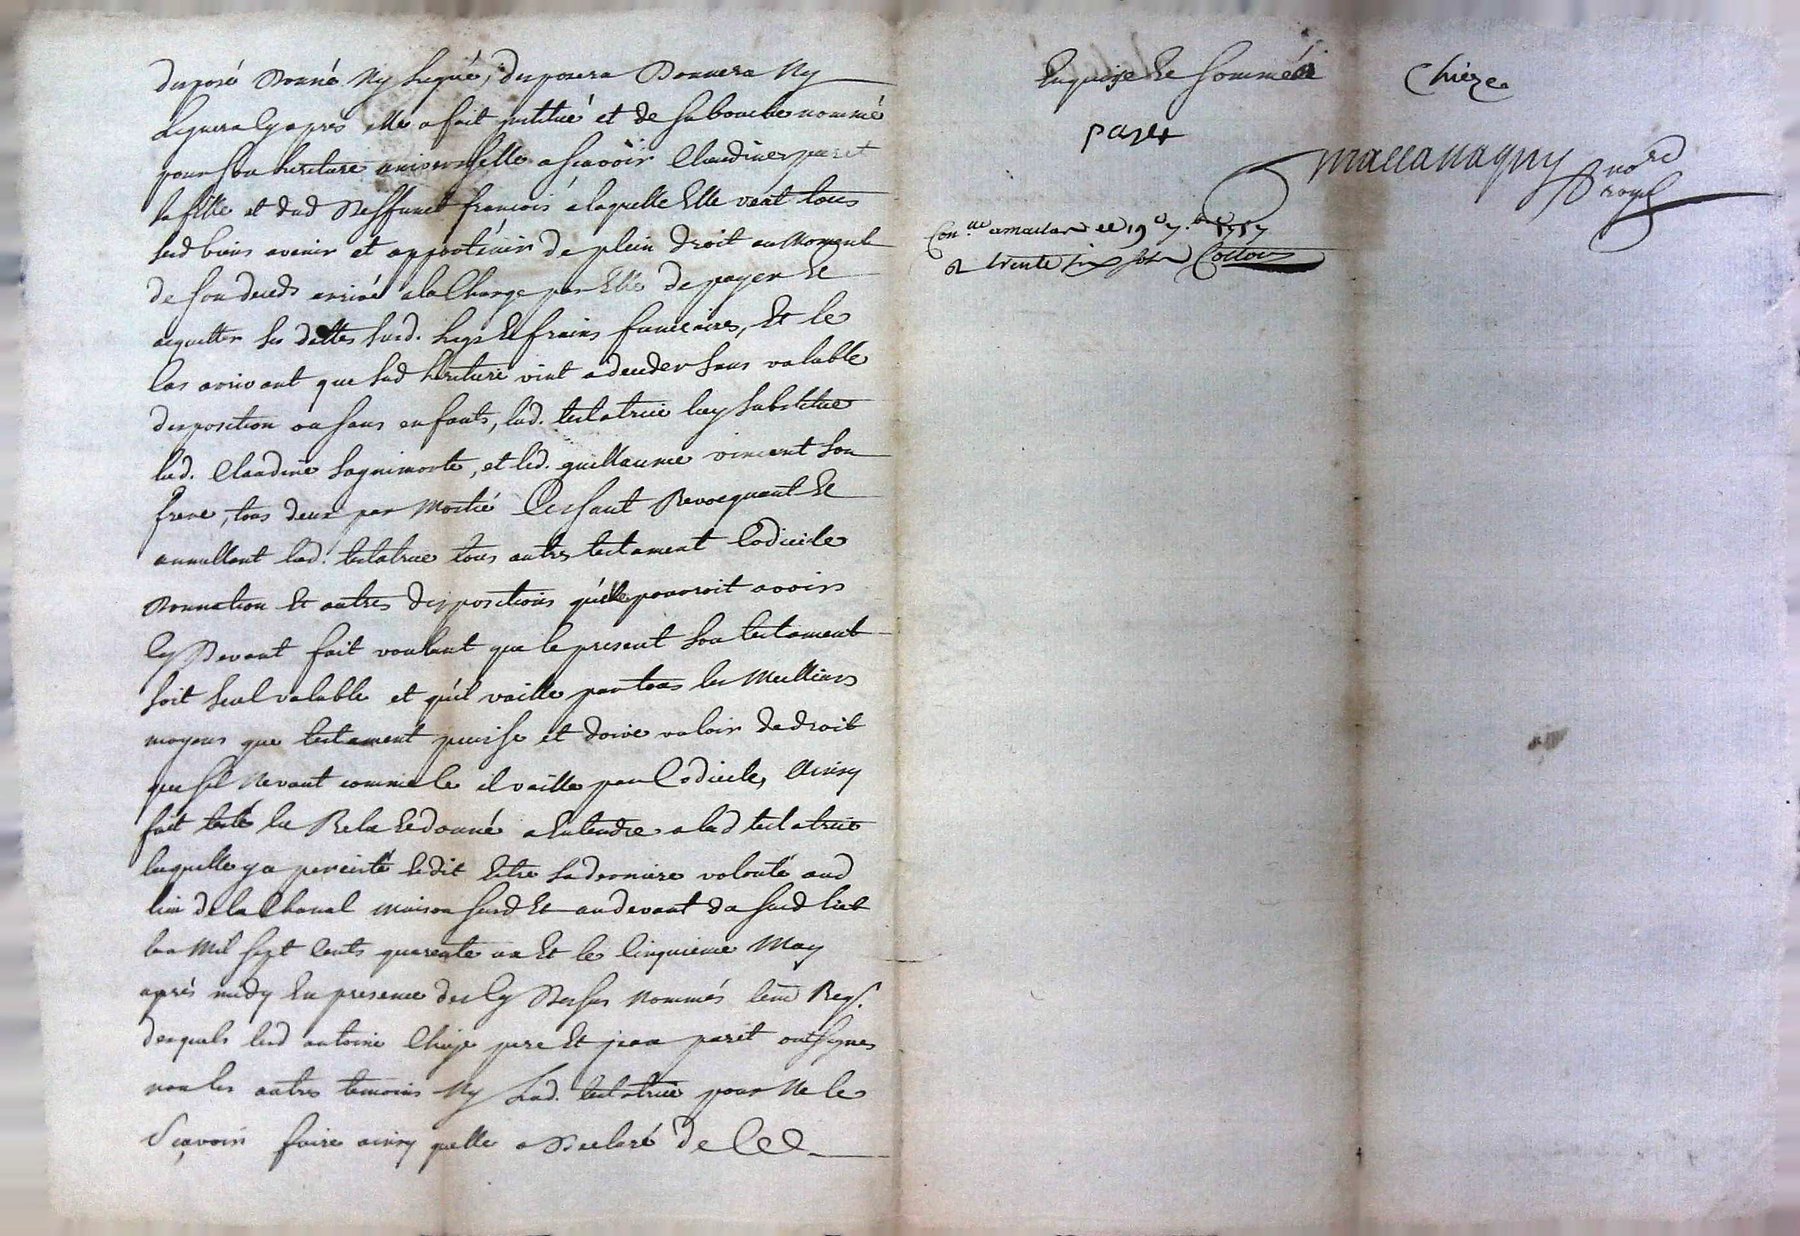 disposé Donné Ny Legué, disposera Donnera Ny
Leguera Cy après elle a fait institué et de sa bouche nommé
pour son heritiere universelle ascavoir Claudine paret
sa fille et dud Deffunct francois a laquelle Elle veut tous
sesd biens avenir et appartenir de plein droit au Moment
de son deceds arrivé a la Charge par Elle de payer Et
acquitter ses dettes susd. Legs Et frais funeraires, Et le
Cas arrivant que sad heritiere vint a deceder sans valable
disposition ou sans enfants, lad. testatrice luy substitue
lad. Claudine Sagnimorte, et led. guillaume vincent son
frere, tous deux par Moitié Cassant Revocquant Et
annullant lad. testatrice tous autres testament Codicile
Donnation Et autres dispositions qu'elle pouvroit avoir
Cy Devant fait voulant que le present son testament
soit seul valable et qu'il vaille par tous les Meilleurs
moyens que testament puisse et doive valoir de droit
que sil Ne vaut comme le il vaille par Codicile, Ainsy
fait testé lu Relu Et donné a Entendre a lad testatrice
laquelle y a percisté Et dit Estre sa derniere volonté aud
lieu de la Chanal maison susd Et au devant de sasd lict
lan Mil sept Cents quarente un Et le Cinquieme May
après midy En presence des Cy Dessus Nommés temd Reqs.
desquels led antoine Chieze pere Et jean paret ont signes
non les autres temoins Ny Lad. testatrice pour Ne le
Scavoir faire ainsy quelle a Declaré de Ce
Enquise Et Sommée
Chieze
paret
no.re
royal
Con.lle a le 19e 7.bre
R trente six sols